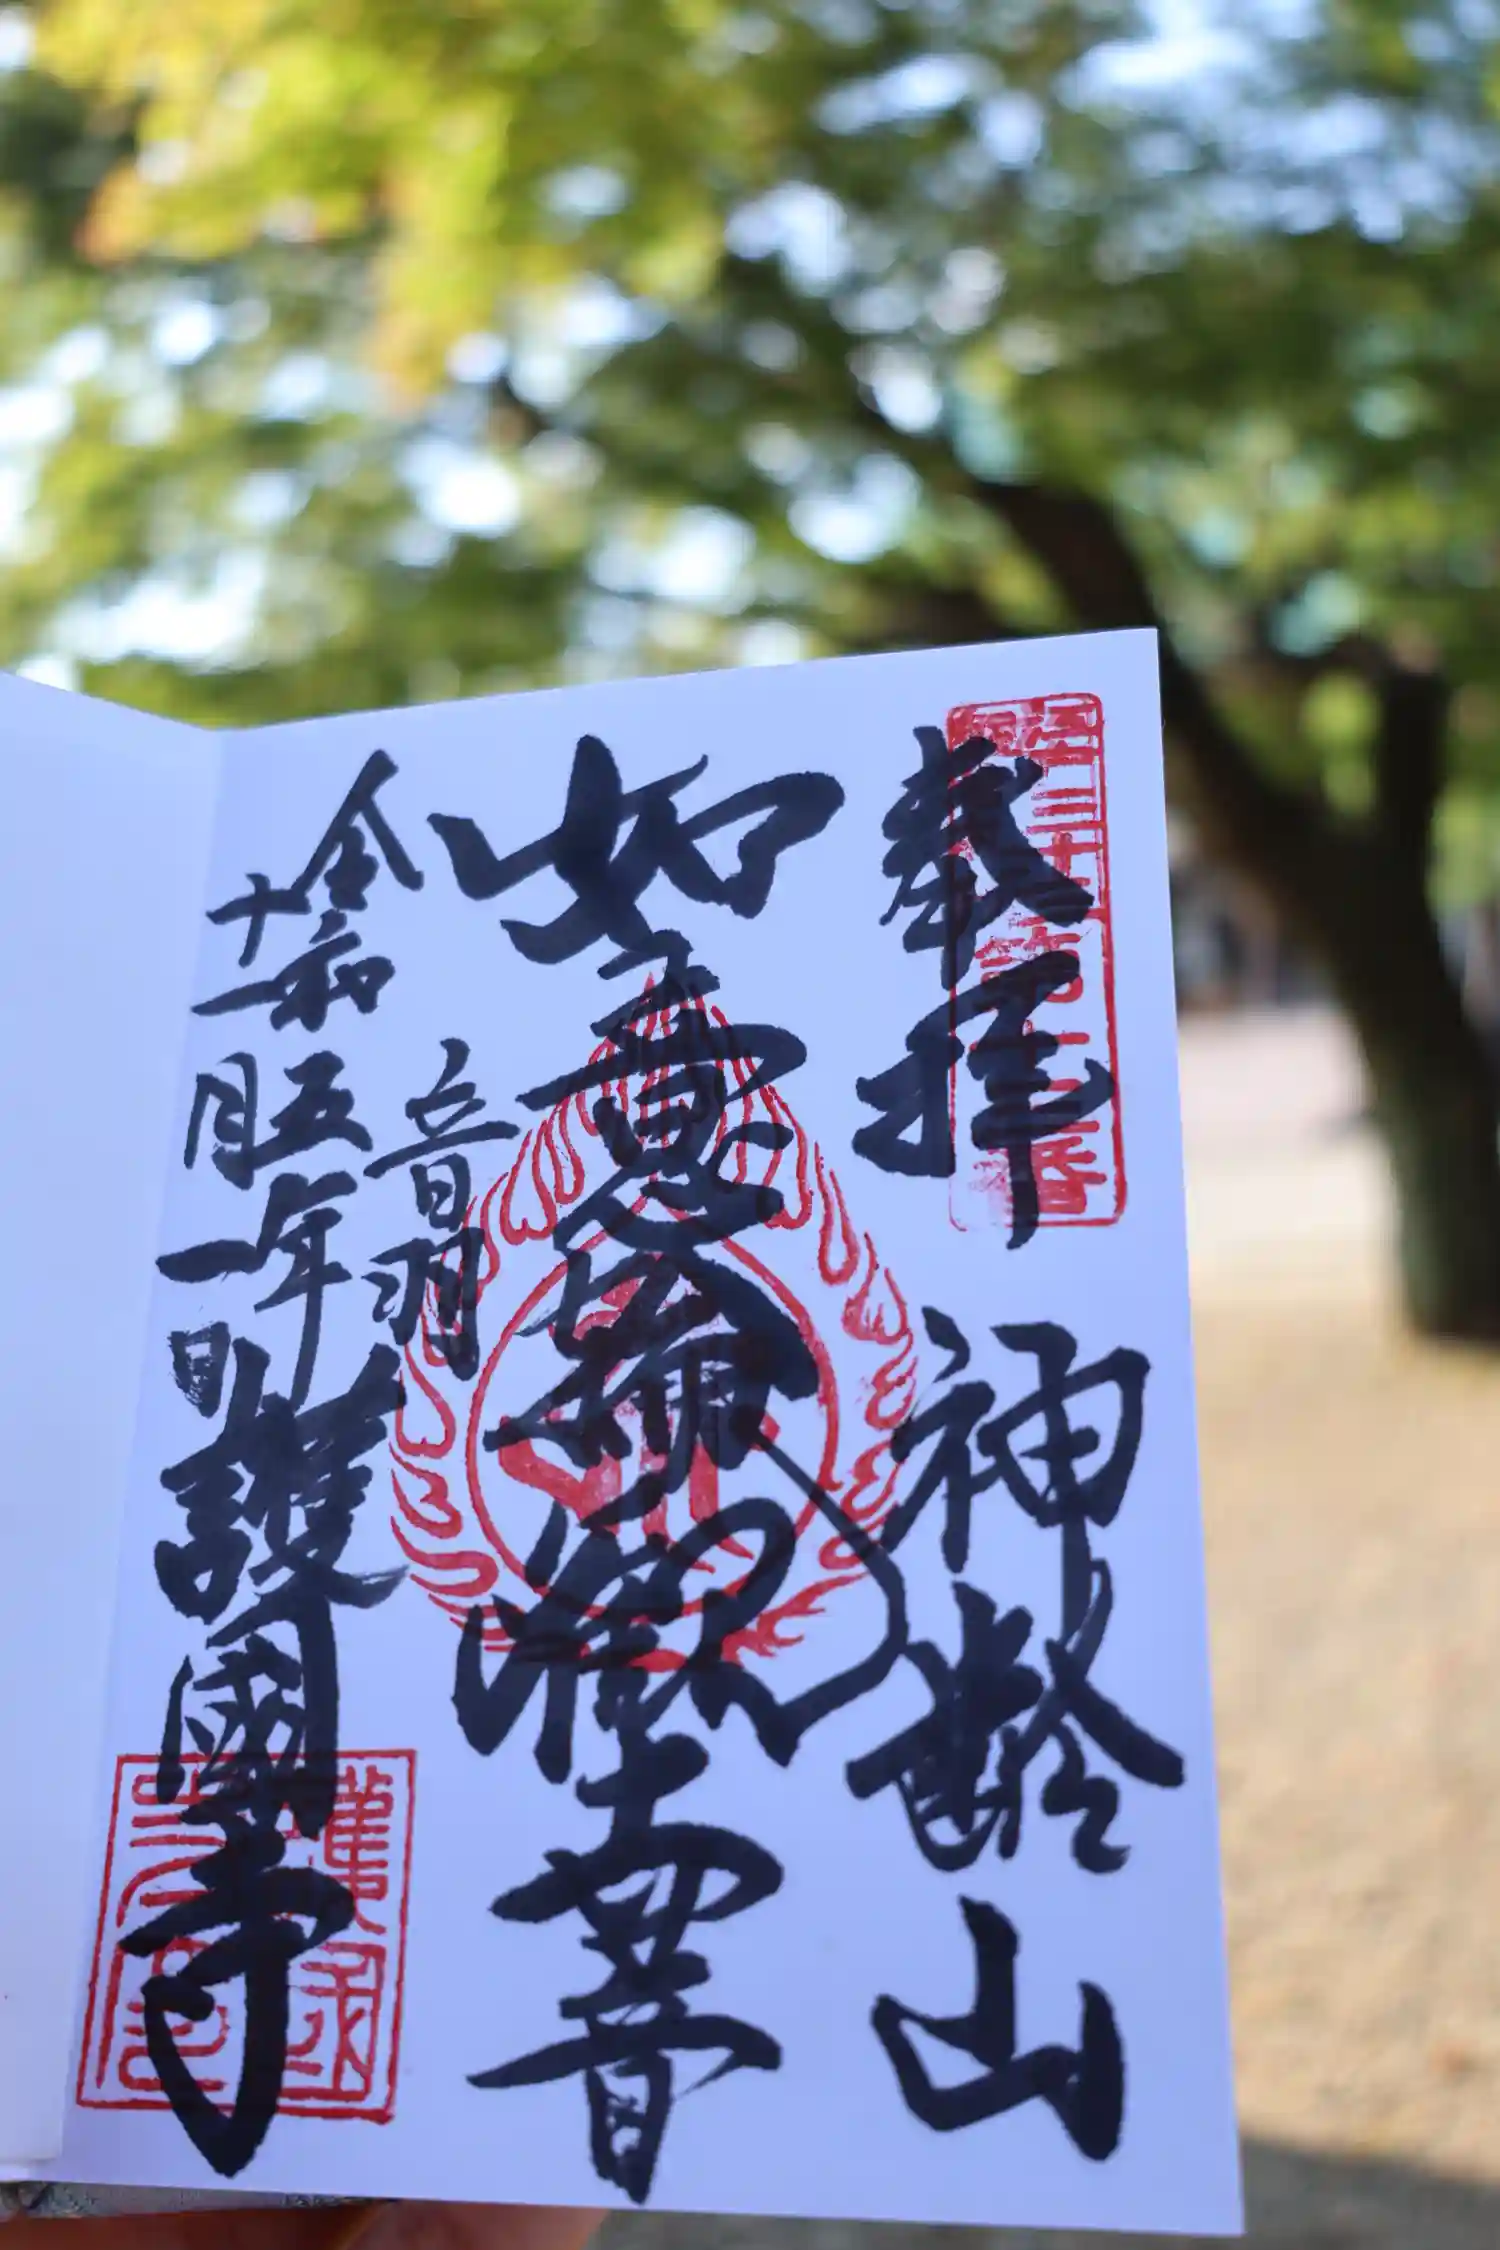 奉拝
神齢山
如意輪觀世音
音羽
護國寺
令和五年
十一月一日